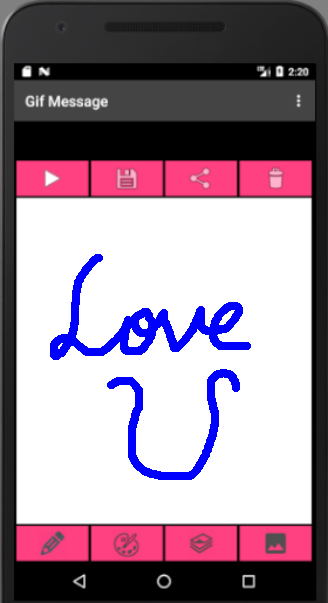 2:20
Gif Message
Love
U